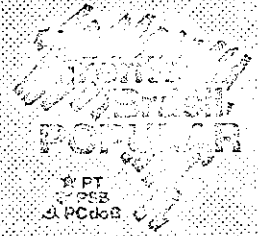 Frente
Brasil
POPULAR
PT
PSB
PCdoB